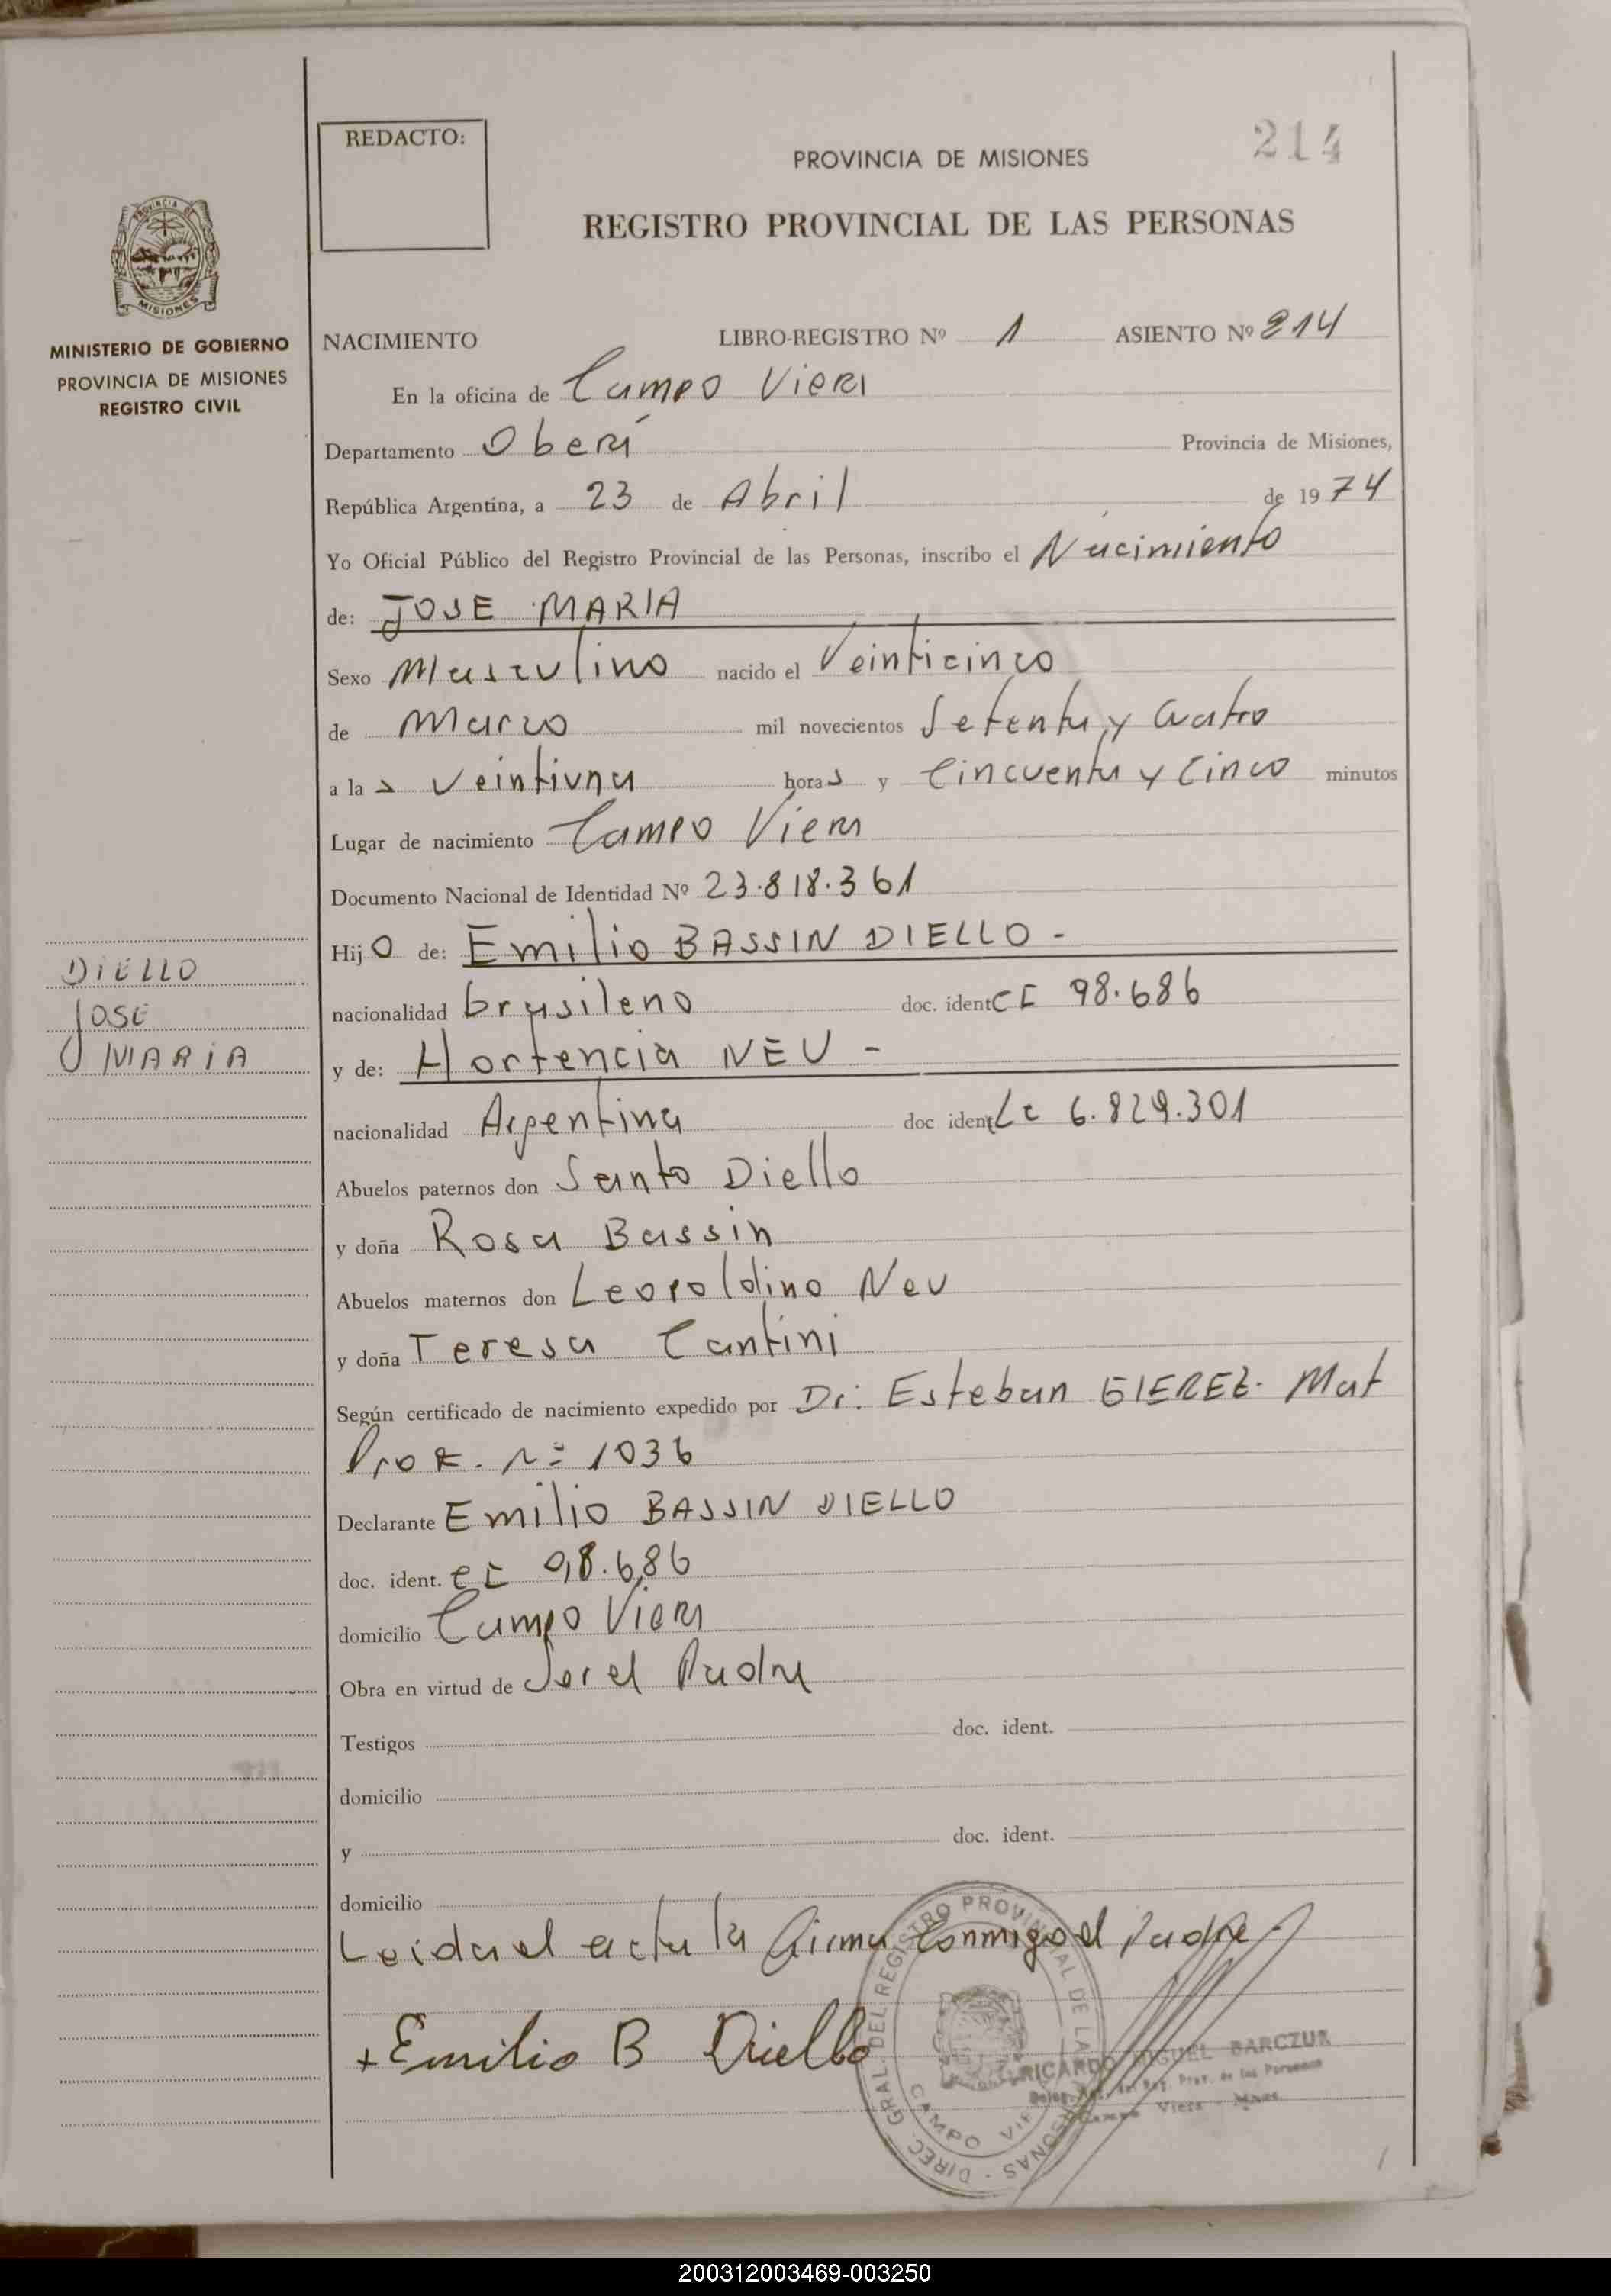 214
REDACTO:
PROVINCIA DE MISIONES
REGISTRO PROVINCIAL DE LAS PERSONAS
PROVINCIA DE
MISIONES
MINISTERIO DE GOBIERNO
PROVINCIA DE MISIONES
REGISTRO CIVIL
NACIMIENTO LIBRO-REGISTRO Nº 1 ASIENTO Nº 214
En la oficina de Campo Viera
Departamento Oberá Provincia de Misiones,
República Argentina, a 23 de Abril de 1974
Yo Oficial Público del Registro Provincial de las Personas, inscribo el Nacimiento
de: JOSE MARIA
Sexo Masculino nacido el Veinticinco
de Marzo mil novecientos Setenta y Cuatro
a las Veintiuna horas y Cincuenta y Cinco minutos
Lugar de nacimiento Campo Viera
Documento Nacional de Identidad Nº 23.818.361
Hijo de: Emilio BASSIN DIELLO -
DIELLO
JOSE
MARIA
nacionalidad brasileno doc. ident CI 98.686
y de: Hortencia NEU -
nacionalidad Argentina doc ident Lc 6.829.301
Abuelos paternos don Santo Diello
y doña Rosa Bassin
Abuelos maternos don Leopoldino Neu
y doña Teresa Cantini
Según certificado de nacimiento expedido por Dr: Esteban GIEREZ. Mat
Prof. nº 1036
Declarante Emilio BASSIN DIELLO
doc. ident. CI 98.686
domicilio Campo Viera
Obra en virtud de Ser el Padre
Testigos doc. ident.
domicilio
y doc. ident.
domicilio
Leida el acta la firma Conmigo el Padre
+ Emilio B Diello
DIREC. GRAL. DEL REGISTRO PROVINCIAL DE LAS PERSONAS
CAMPO VIERA
RICARDO MIGUEL BARCZUK
Reg. Prov. de las Personas
Campo Viera - Mnes.
200312003469-003250